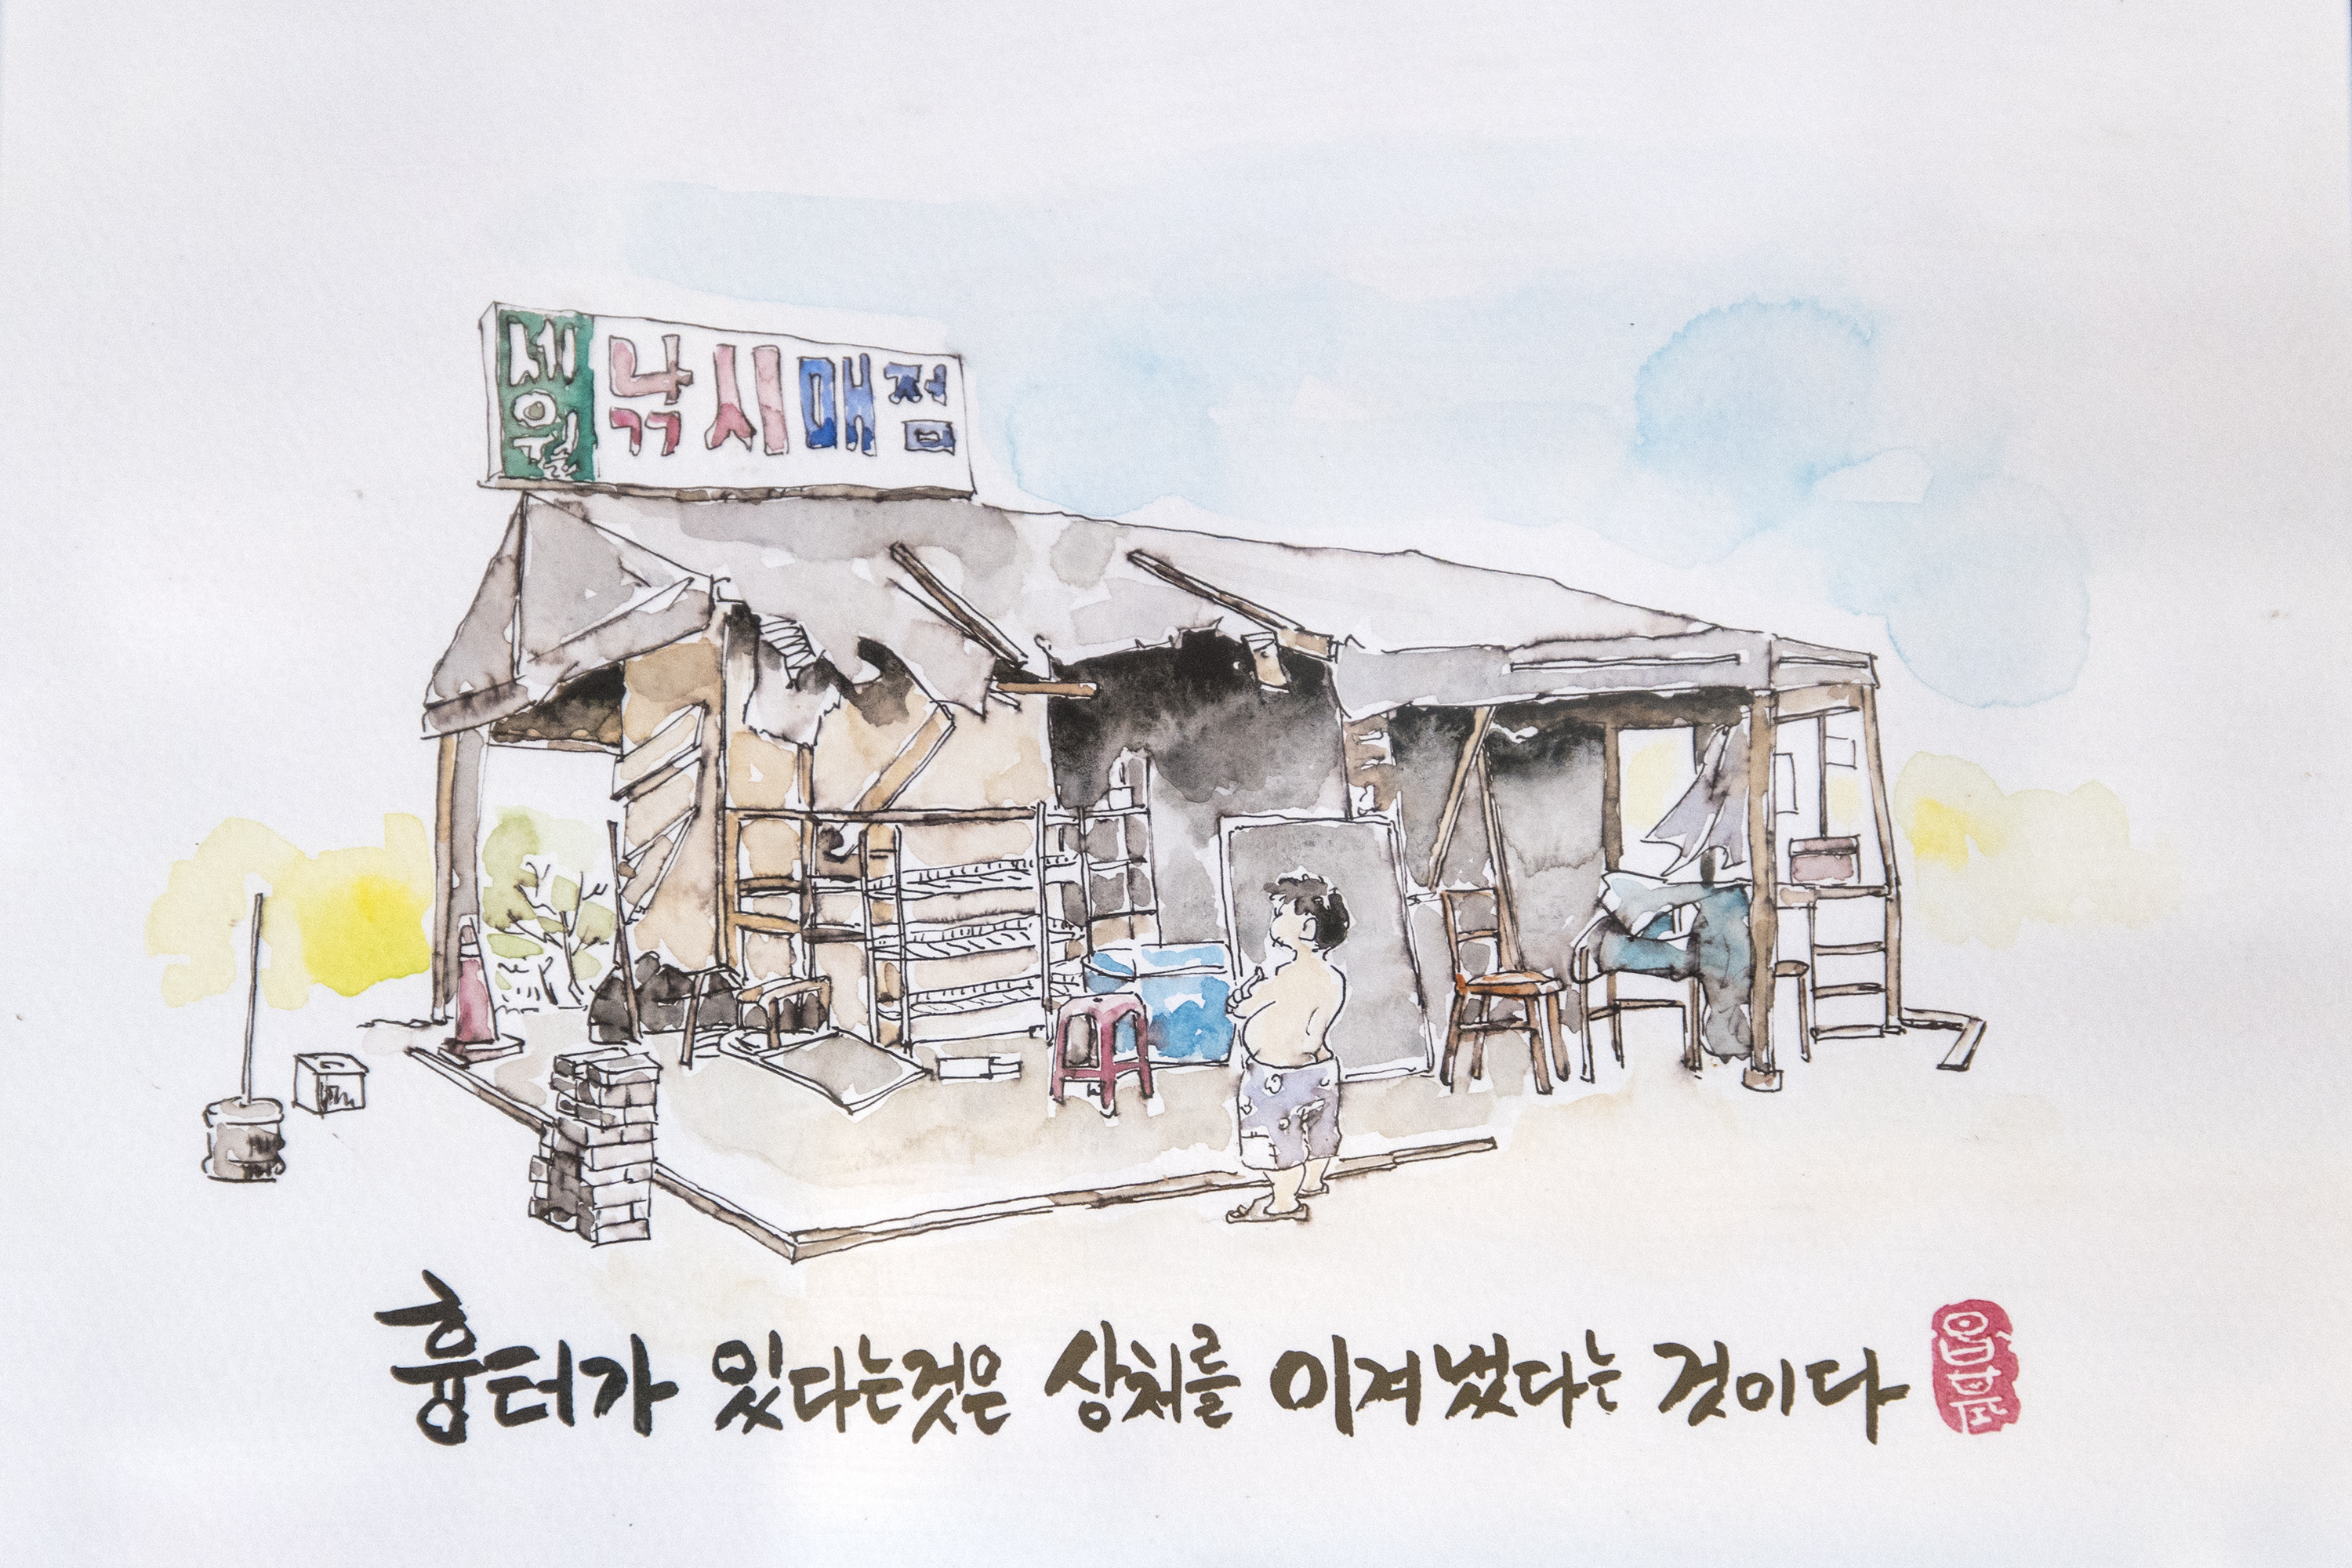 세월
낚시매점
흉터가 있다는것은 상처를 이겨냈다는 것이다